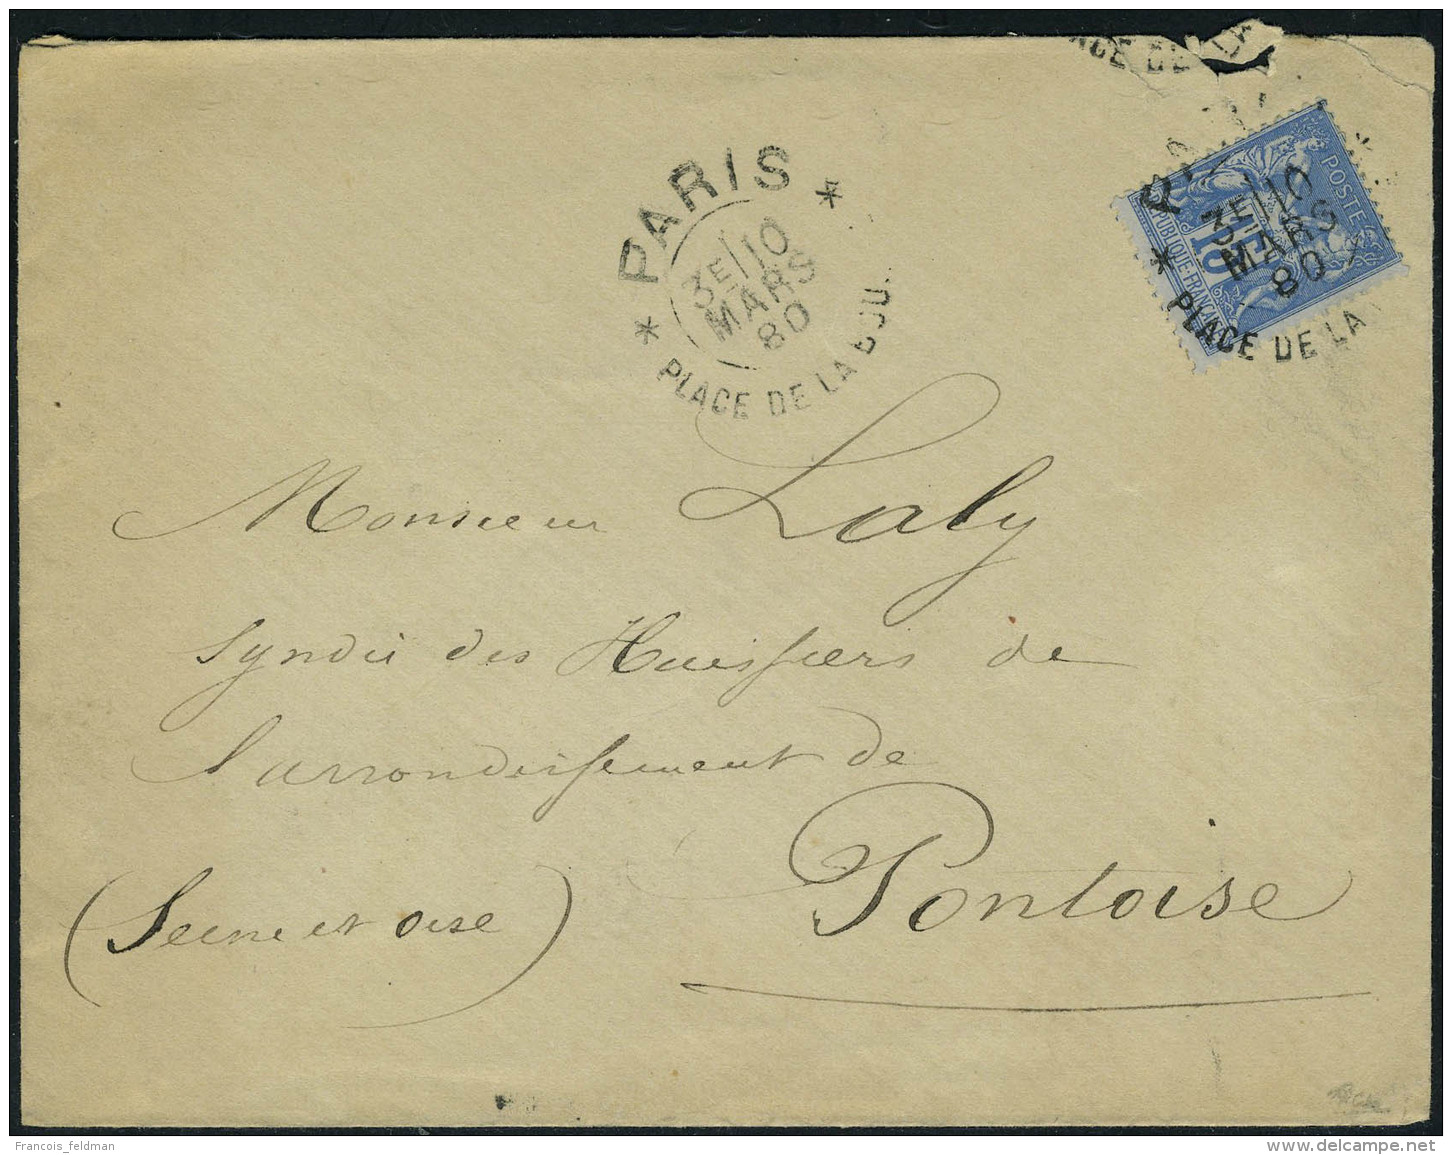 PLACE DE LA
PARIS
3E/10
MARS
80
PLACE DE LA BOU
POSTE
REPUBLIQUE FRANCAISE
15
3E/10
MARS
80
PLACE DE LA
Monsieur Laly
Syndic des Huissiers de
l'arrondissement de
Pontoise
(Seine et Oise)
Francois_feldman
www.delcampe.net